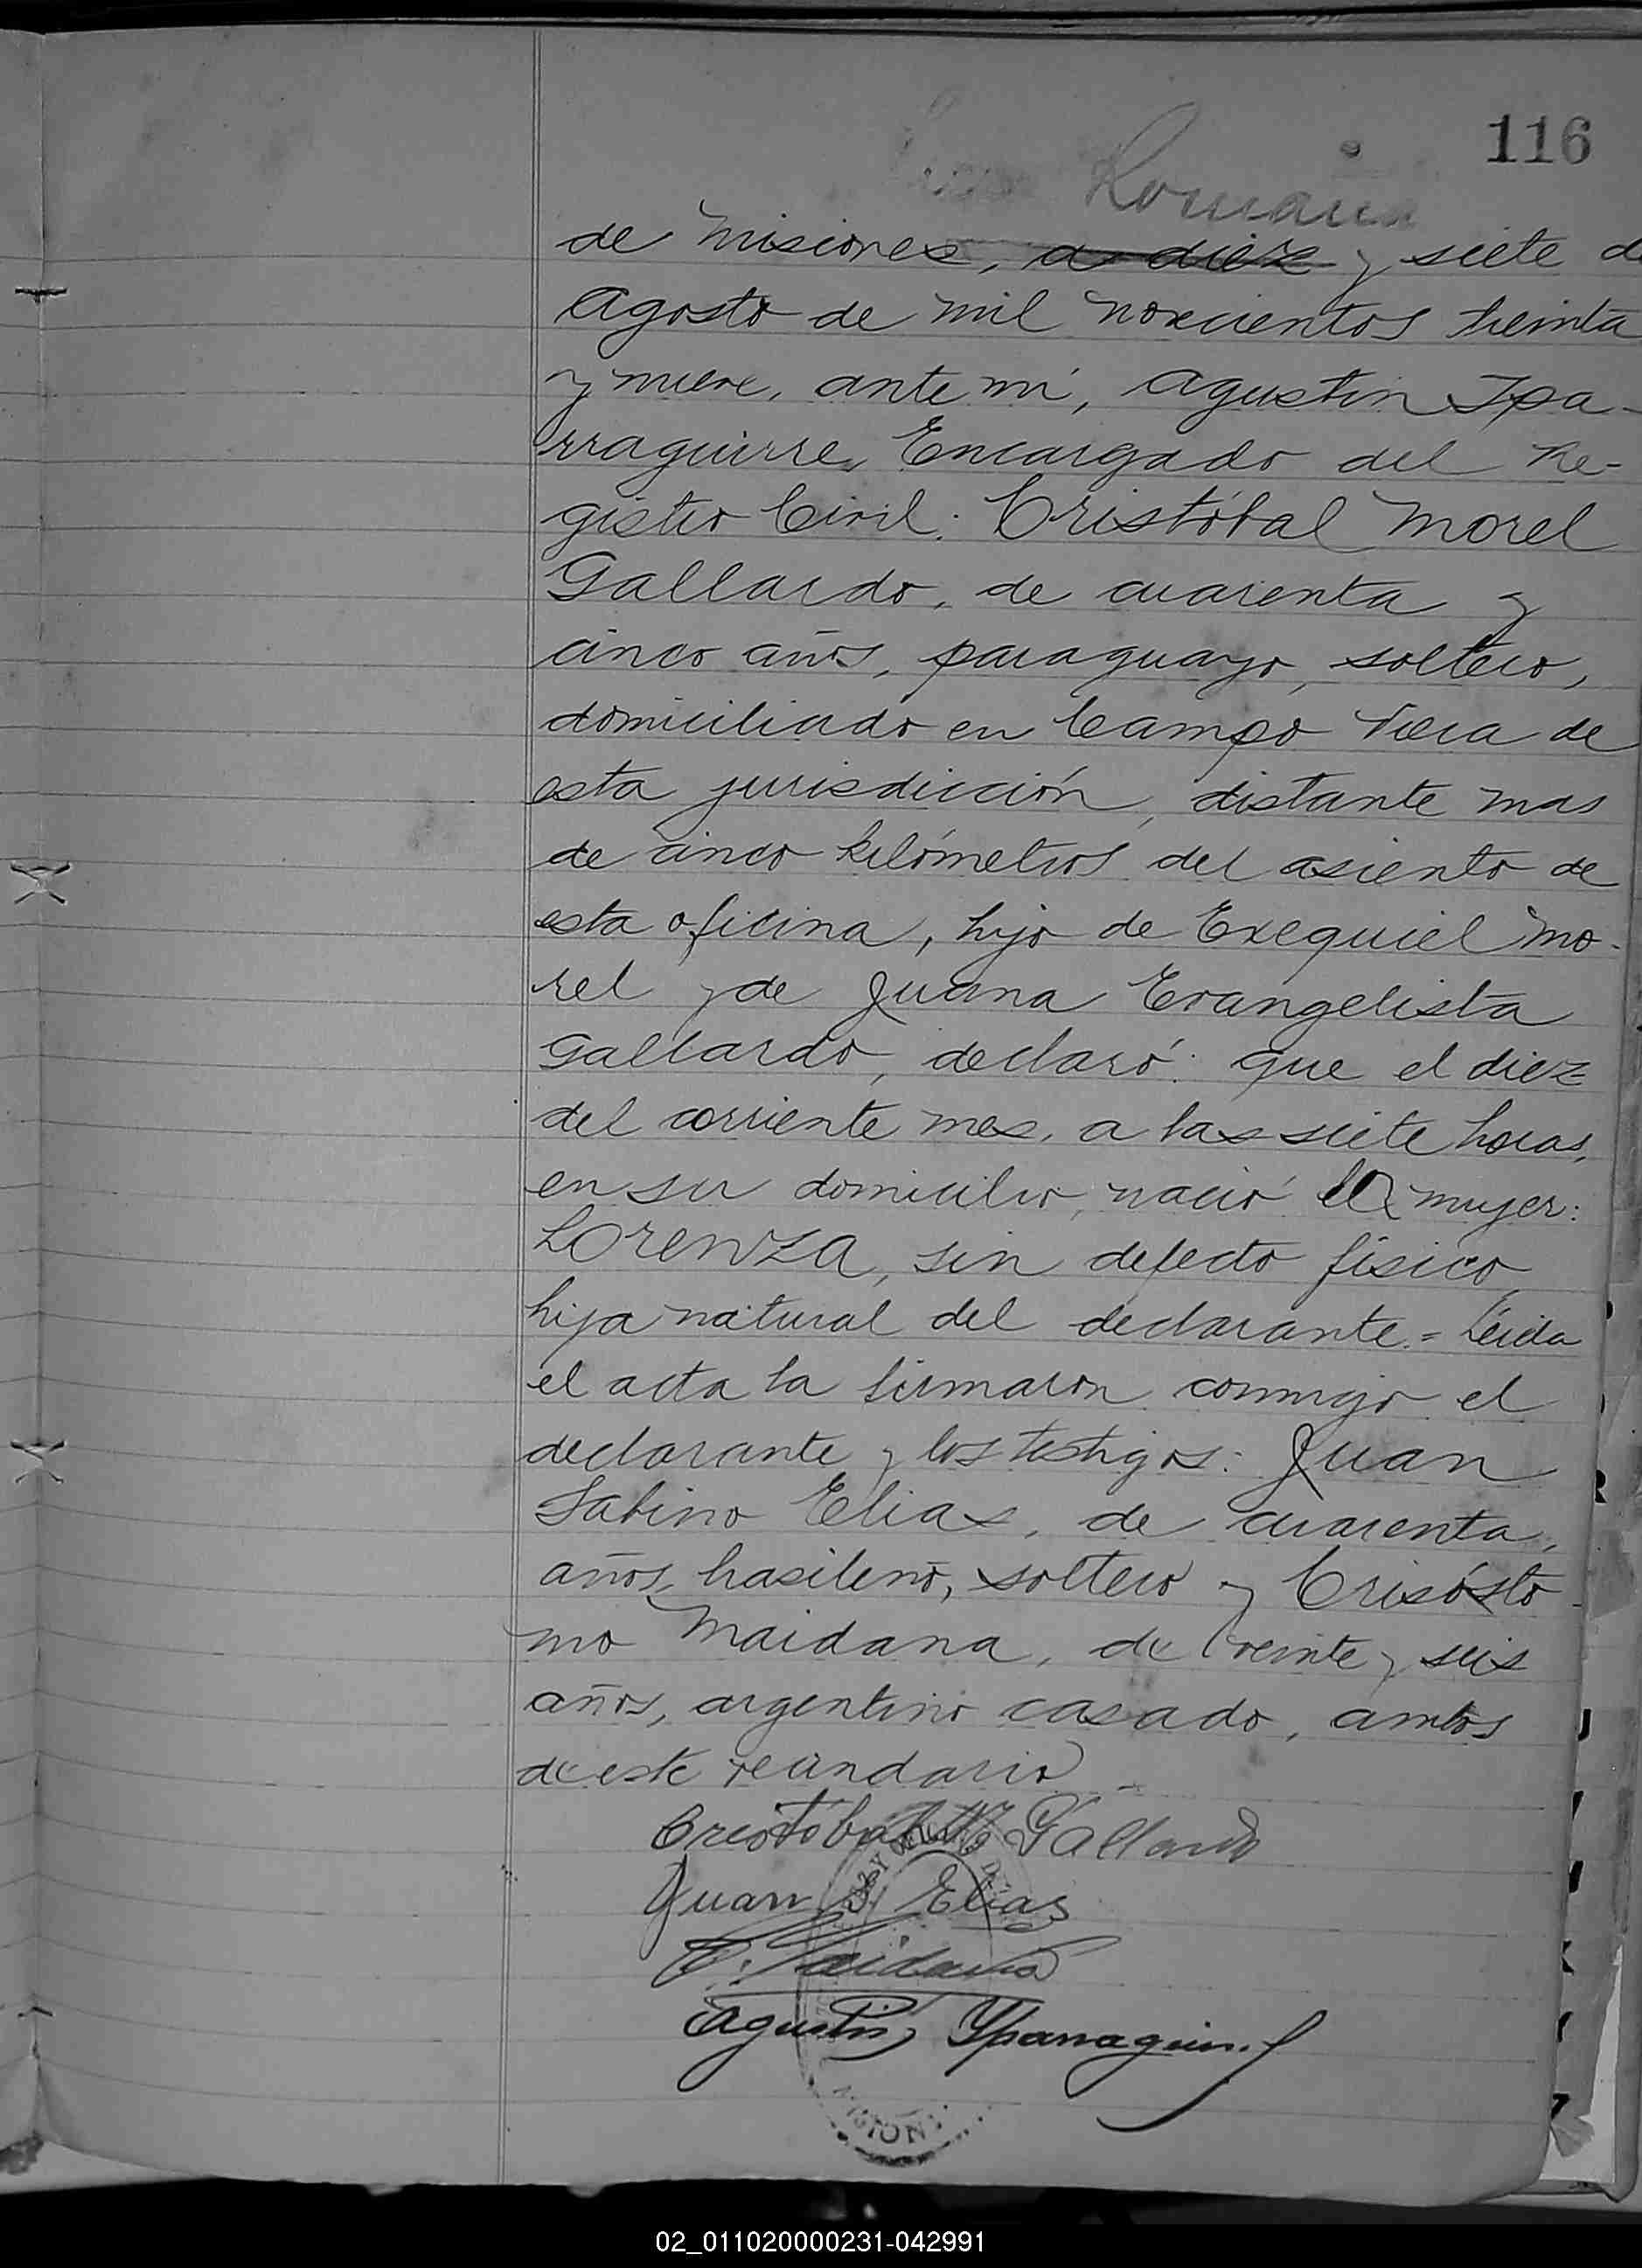 116
Romana
de Misiones, a diez y siete d
Agosto de mil novecientos treinta
y nueve, ante mí, Agustin Ipa-
rraguirre, Encargado del Re-
gistro Civil: Cristóbal Morel
Gallardo, de cuarenta y
cinco años, paraguayo, soltero,
domiciliado en Campo Viera de
esta jurisdicción, distante mas
de cinco kilómetros del asiento de
esta oficina, hijo de Exequiel Mo-
rel y de Juana Evangelista
Gallardo, declaró: que el diez
del corriente mes, a las siete horas,
en su domicilio, nació la mujer:
LORENZA, sin defecto físico,
hija natural del declarante.= Leida
el acta la firmaron conmigo el
declarante y los testigos: Juan
Sabino Elias, de cuarenta,
años, brasileño, soltero y Crisósto-
mo Maidana, de veinte y seis
años, argentino casado, ambos
de este vecindario
Cristóbal M Gallardo
Juan S. Elias
C. Maidana
Agustin Yparraguirre
02_011020000231-042991